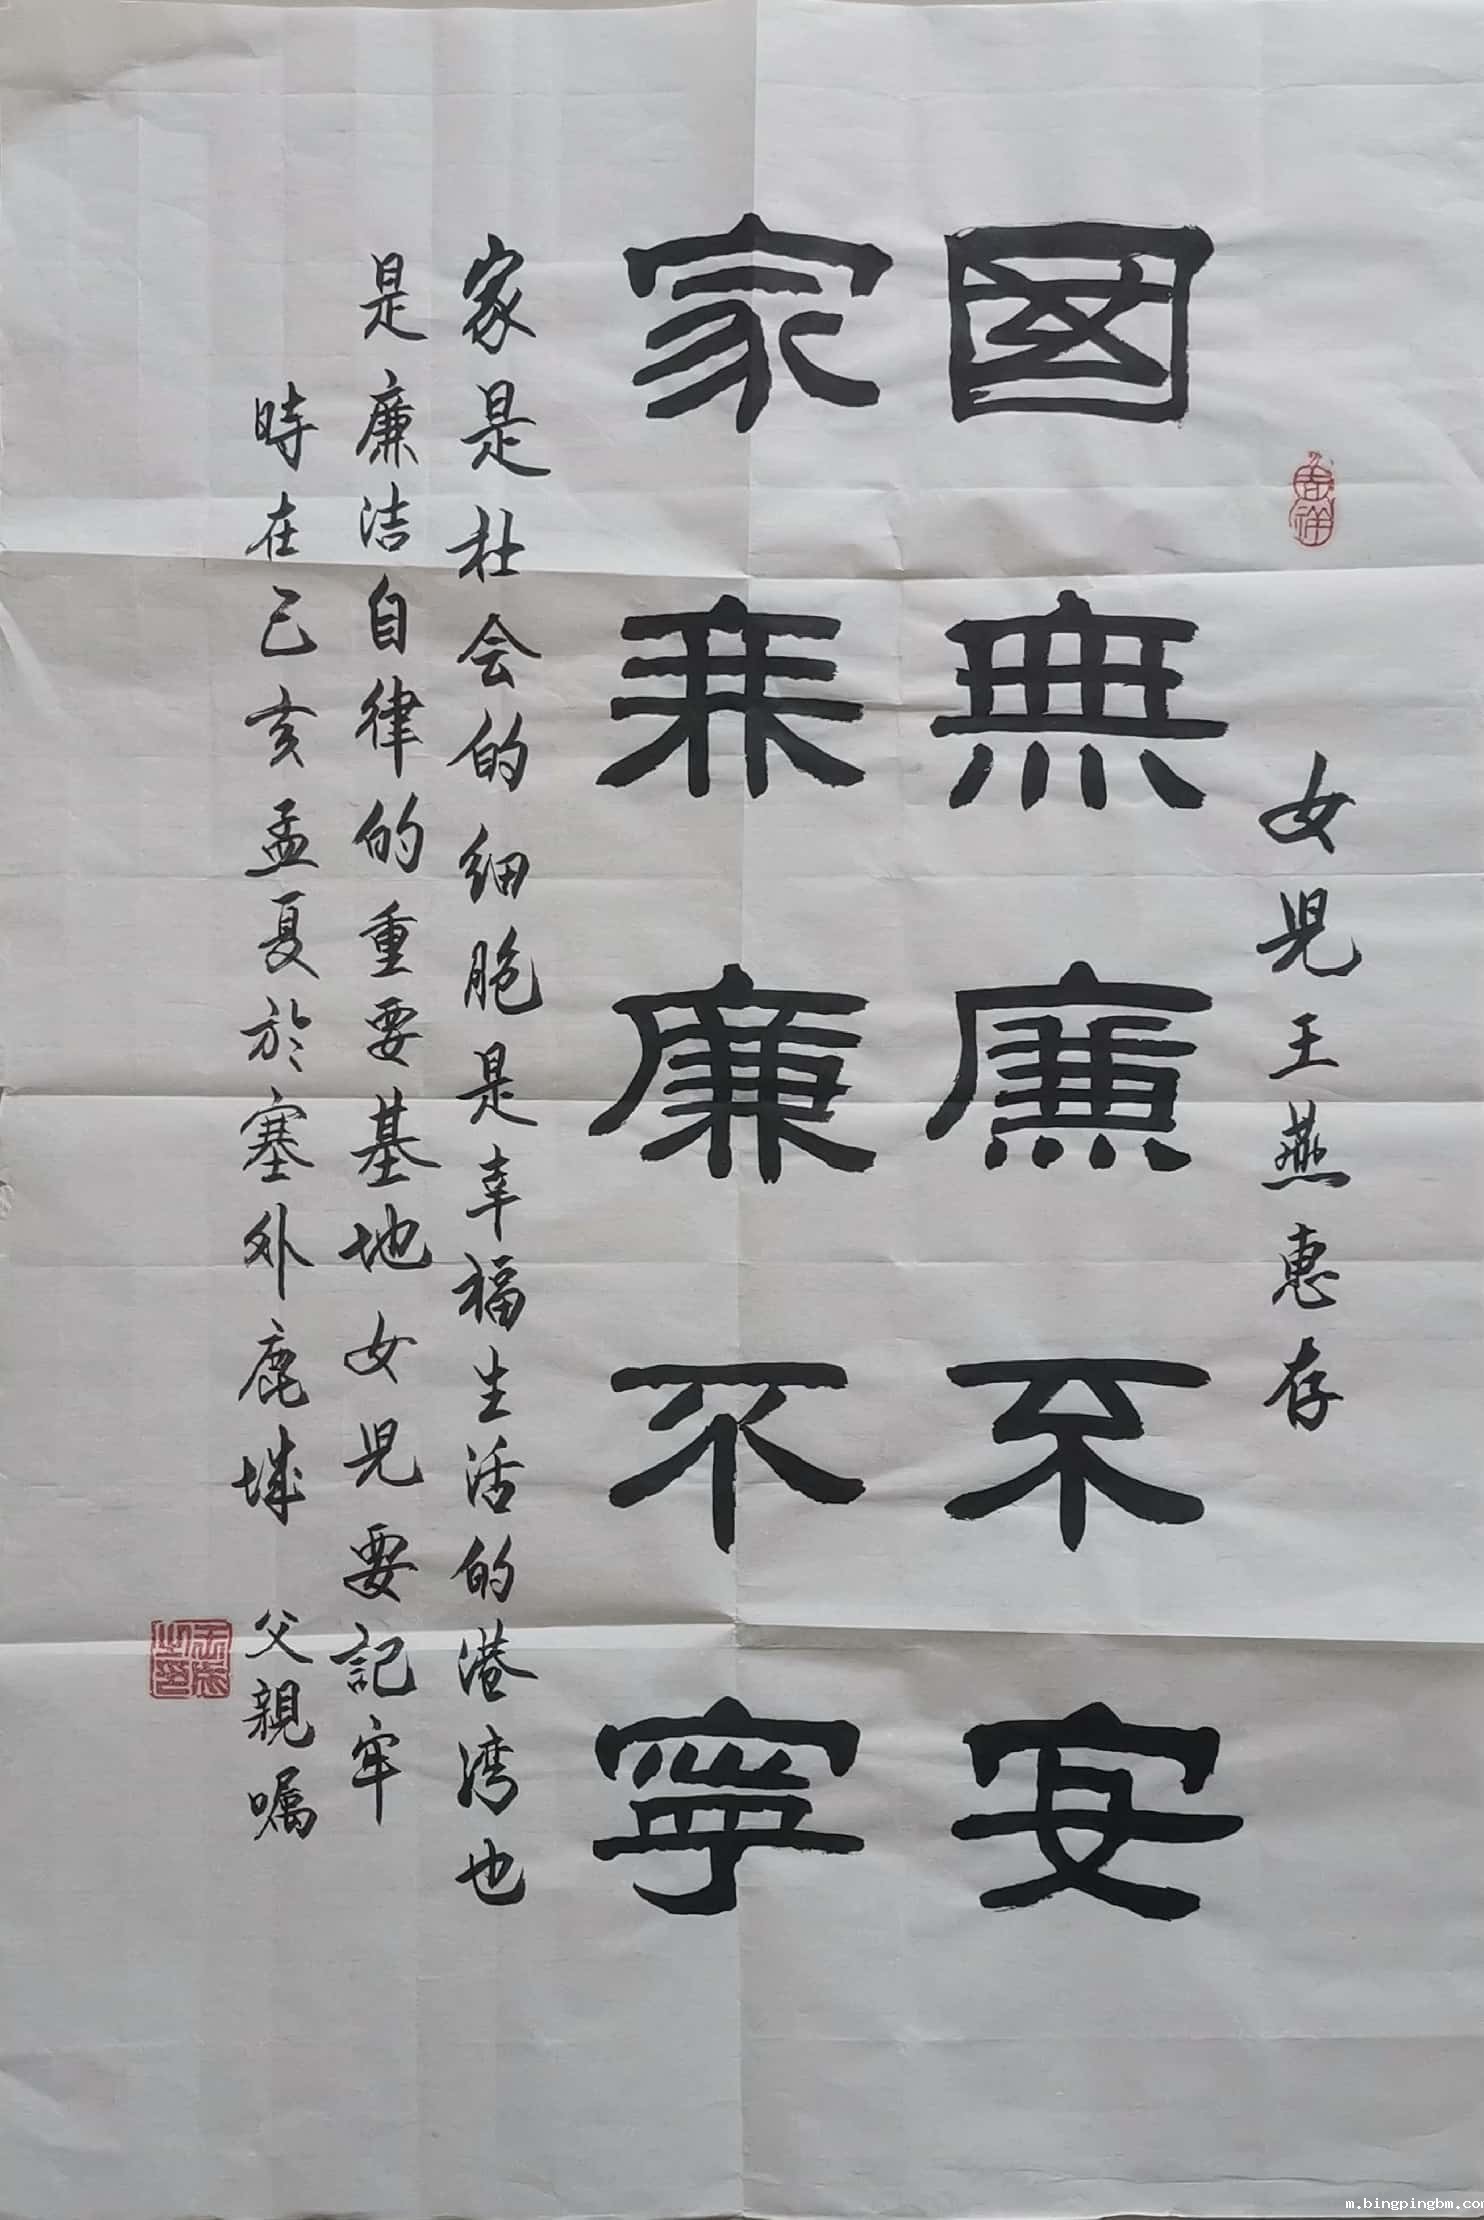 女兒王燕惠存
國無廉不安
家無廉不寧
家是社会的细胞是幸福生活的港湾也
是廉洁自律的重要基地女兒要記牢
時在己亥孟夏於塞外鹿城
父親嘱
吉祥
m.bingpingbm.com